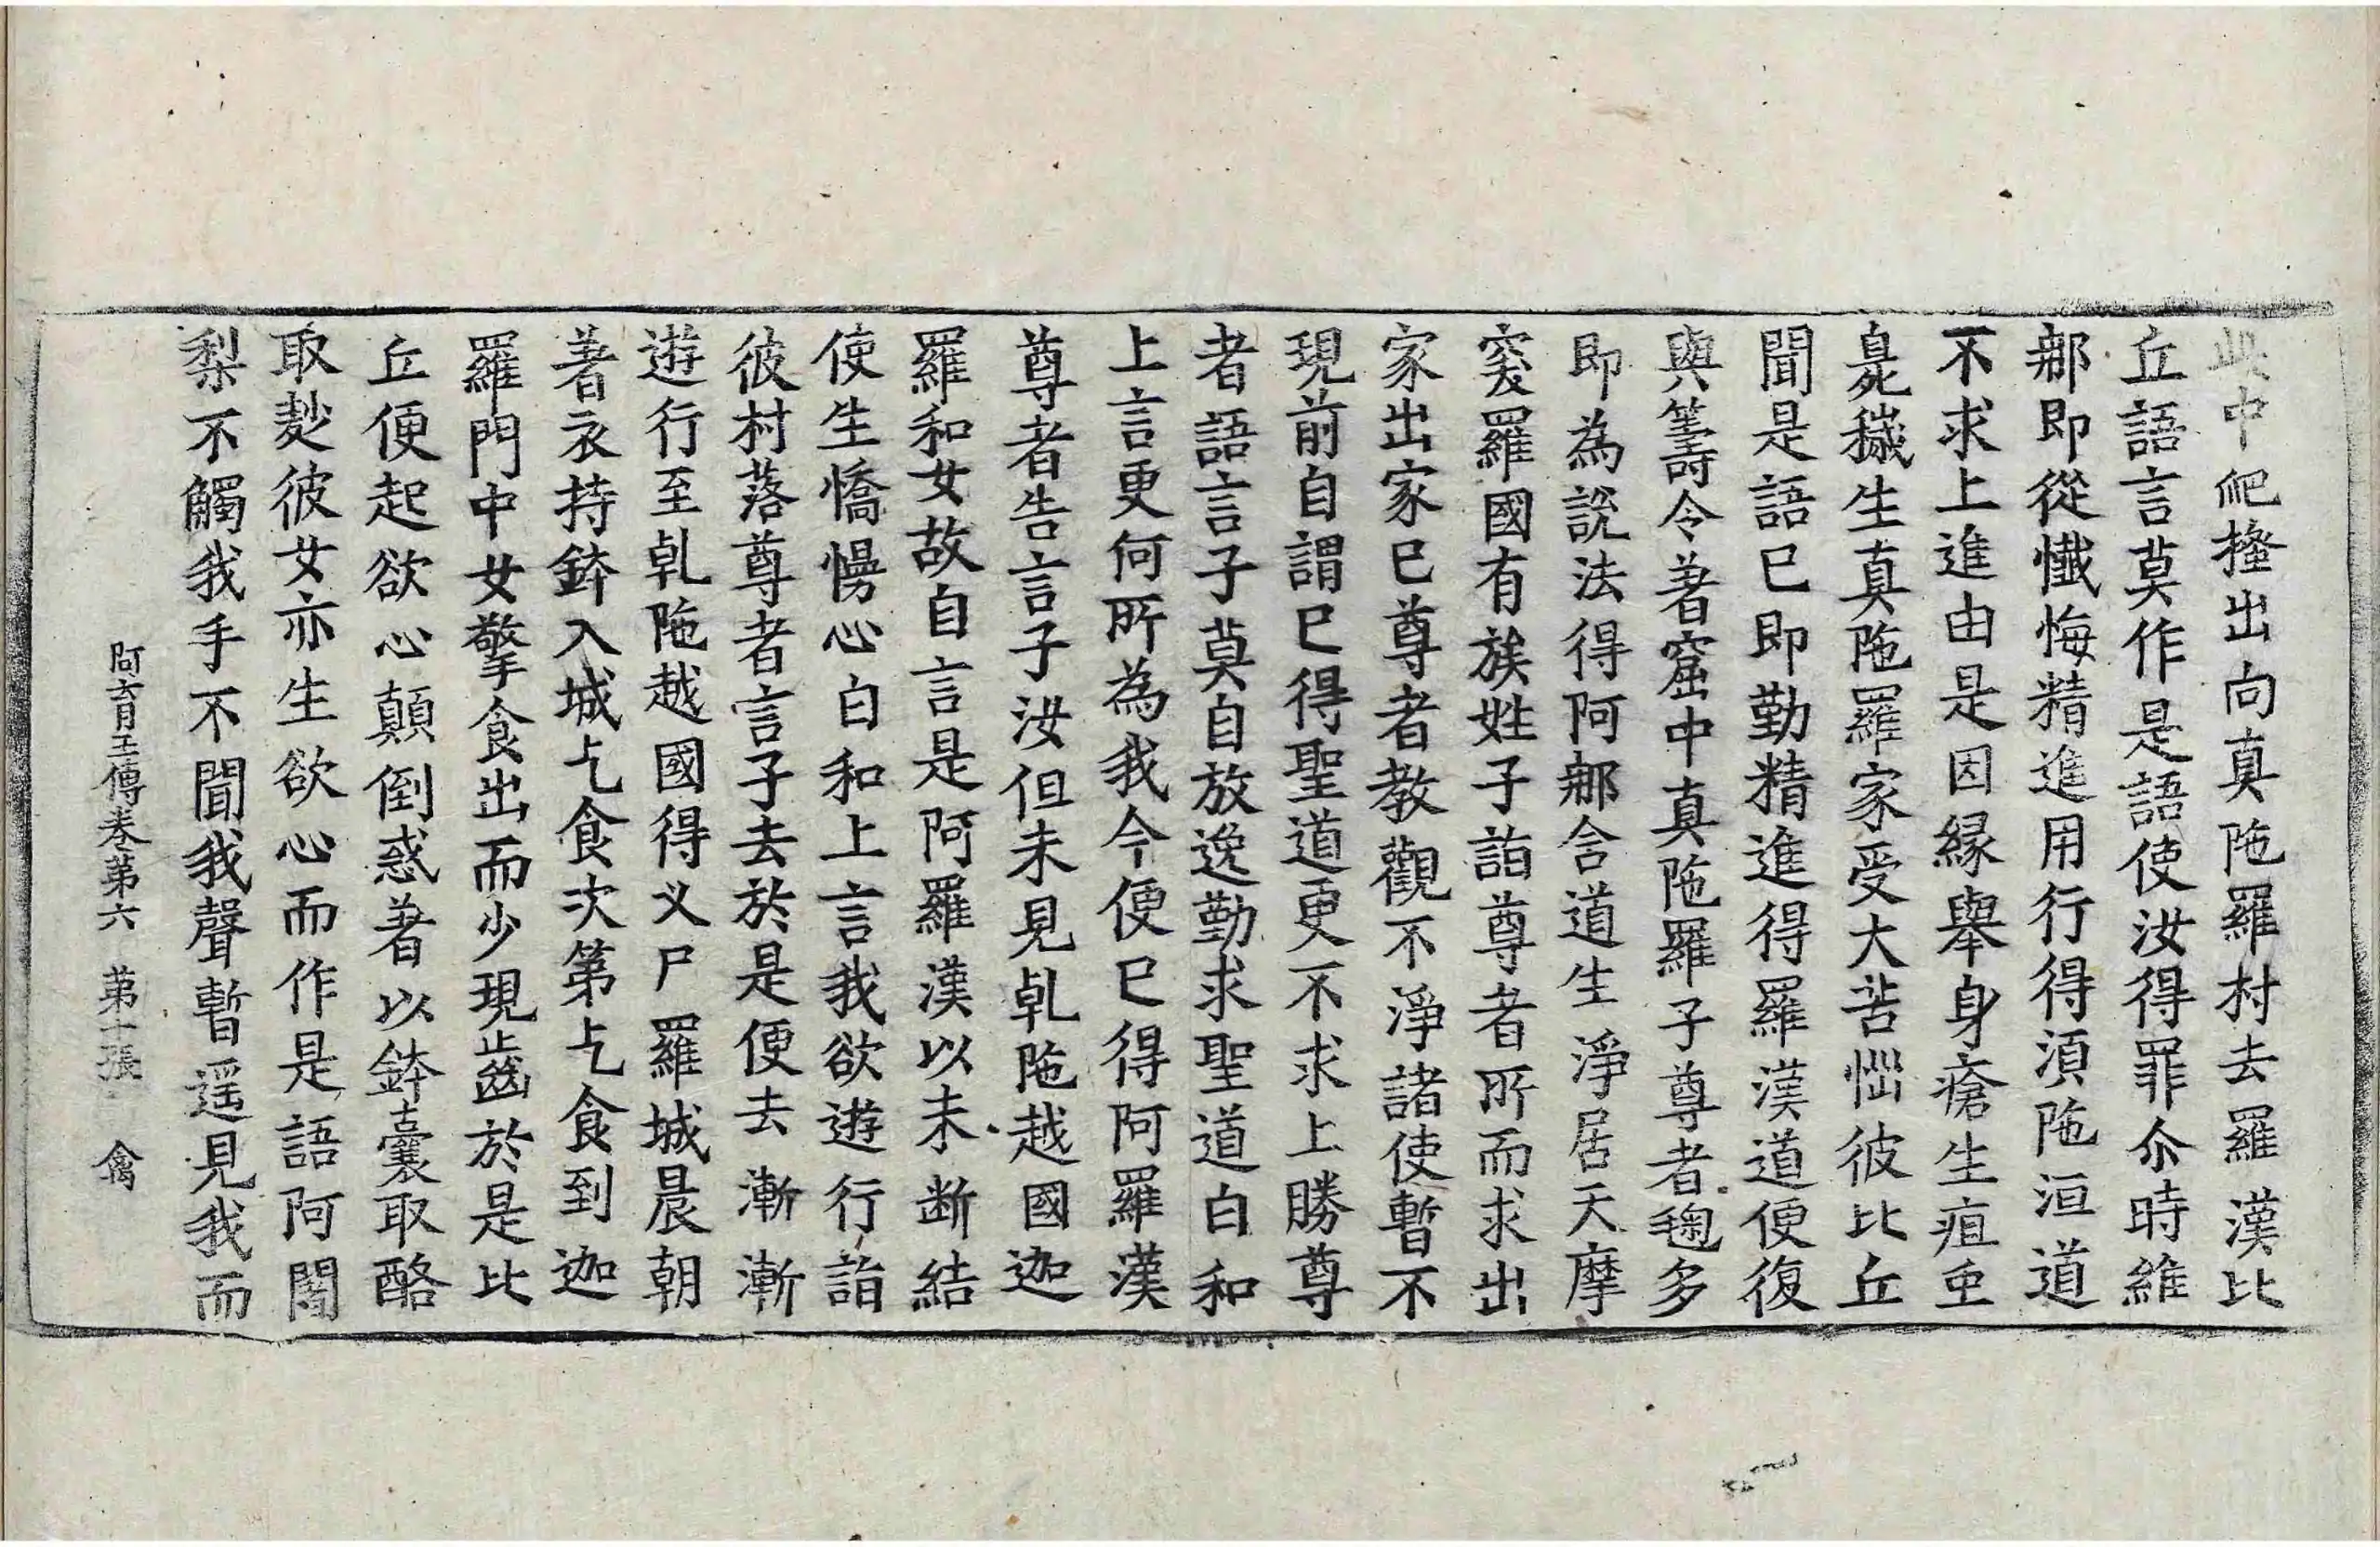 此中爬𢱢出向真陁羅村去羅漢比
丘語言莫作是語使汝得罪尒時維
那即從懺悔精進用行得湏陁洹道
不求上進由是因縁舉身瘡生疽虫
臭穢生真陁羅家受大苦惱彼比丘
聞是語已即勤精進得羅漢道便復
與籌令著窟中真陁羅子尊者毱多
即為說法得阿那含道生淨居天摩
突羅國有族姓子詣尊者所而求出
家出家已尊者教觀不淨諸使暫不
現前自謂已得聖道更不求上勝尊
者語言子莫自放逸勤求聖道白和
上言更何所為我今便已得阿羅漢
尊者告言子汝但未見乹陁越國迦
羅和女故自言是阿羅漢以未斷結
使生憍慢心白和上言我欲遊行詣
彼村落尊者言子去於是便去漸漸
遊行至乹陁越國得义尸羅城晨朝
著衣持鉢入城乞食次第乞食到迦
羅門中女擎食出而少現齒於是比
丘便起欲心顛倒惑著以鉢囊取酪
取麨彼女亦生欲心而作是語阿闍
梨不觸我手不聞我聲暫遥見我而
阿育王傳卷第六 第十張 禽